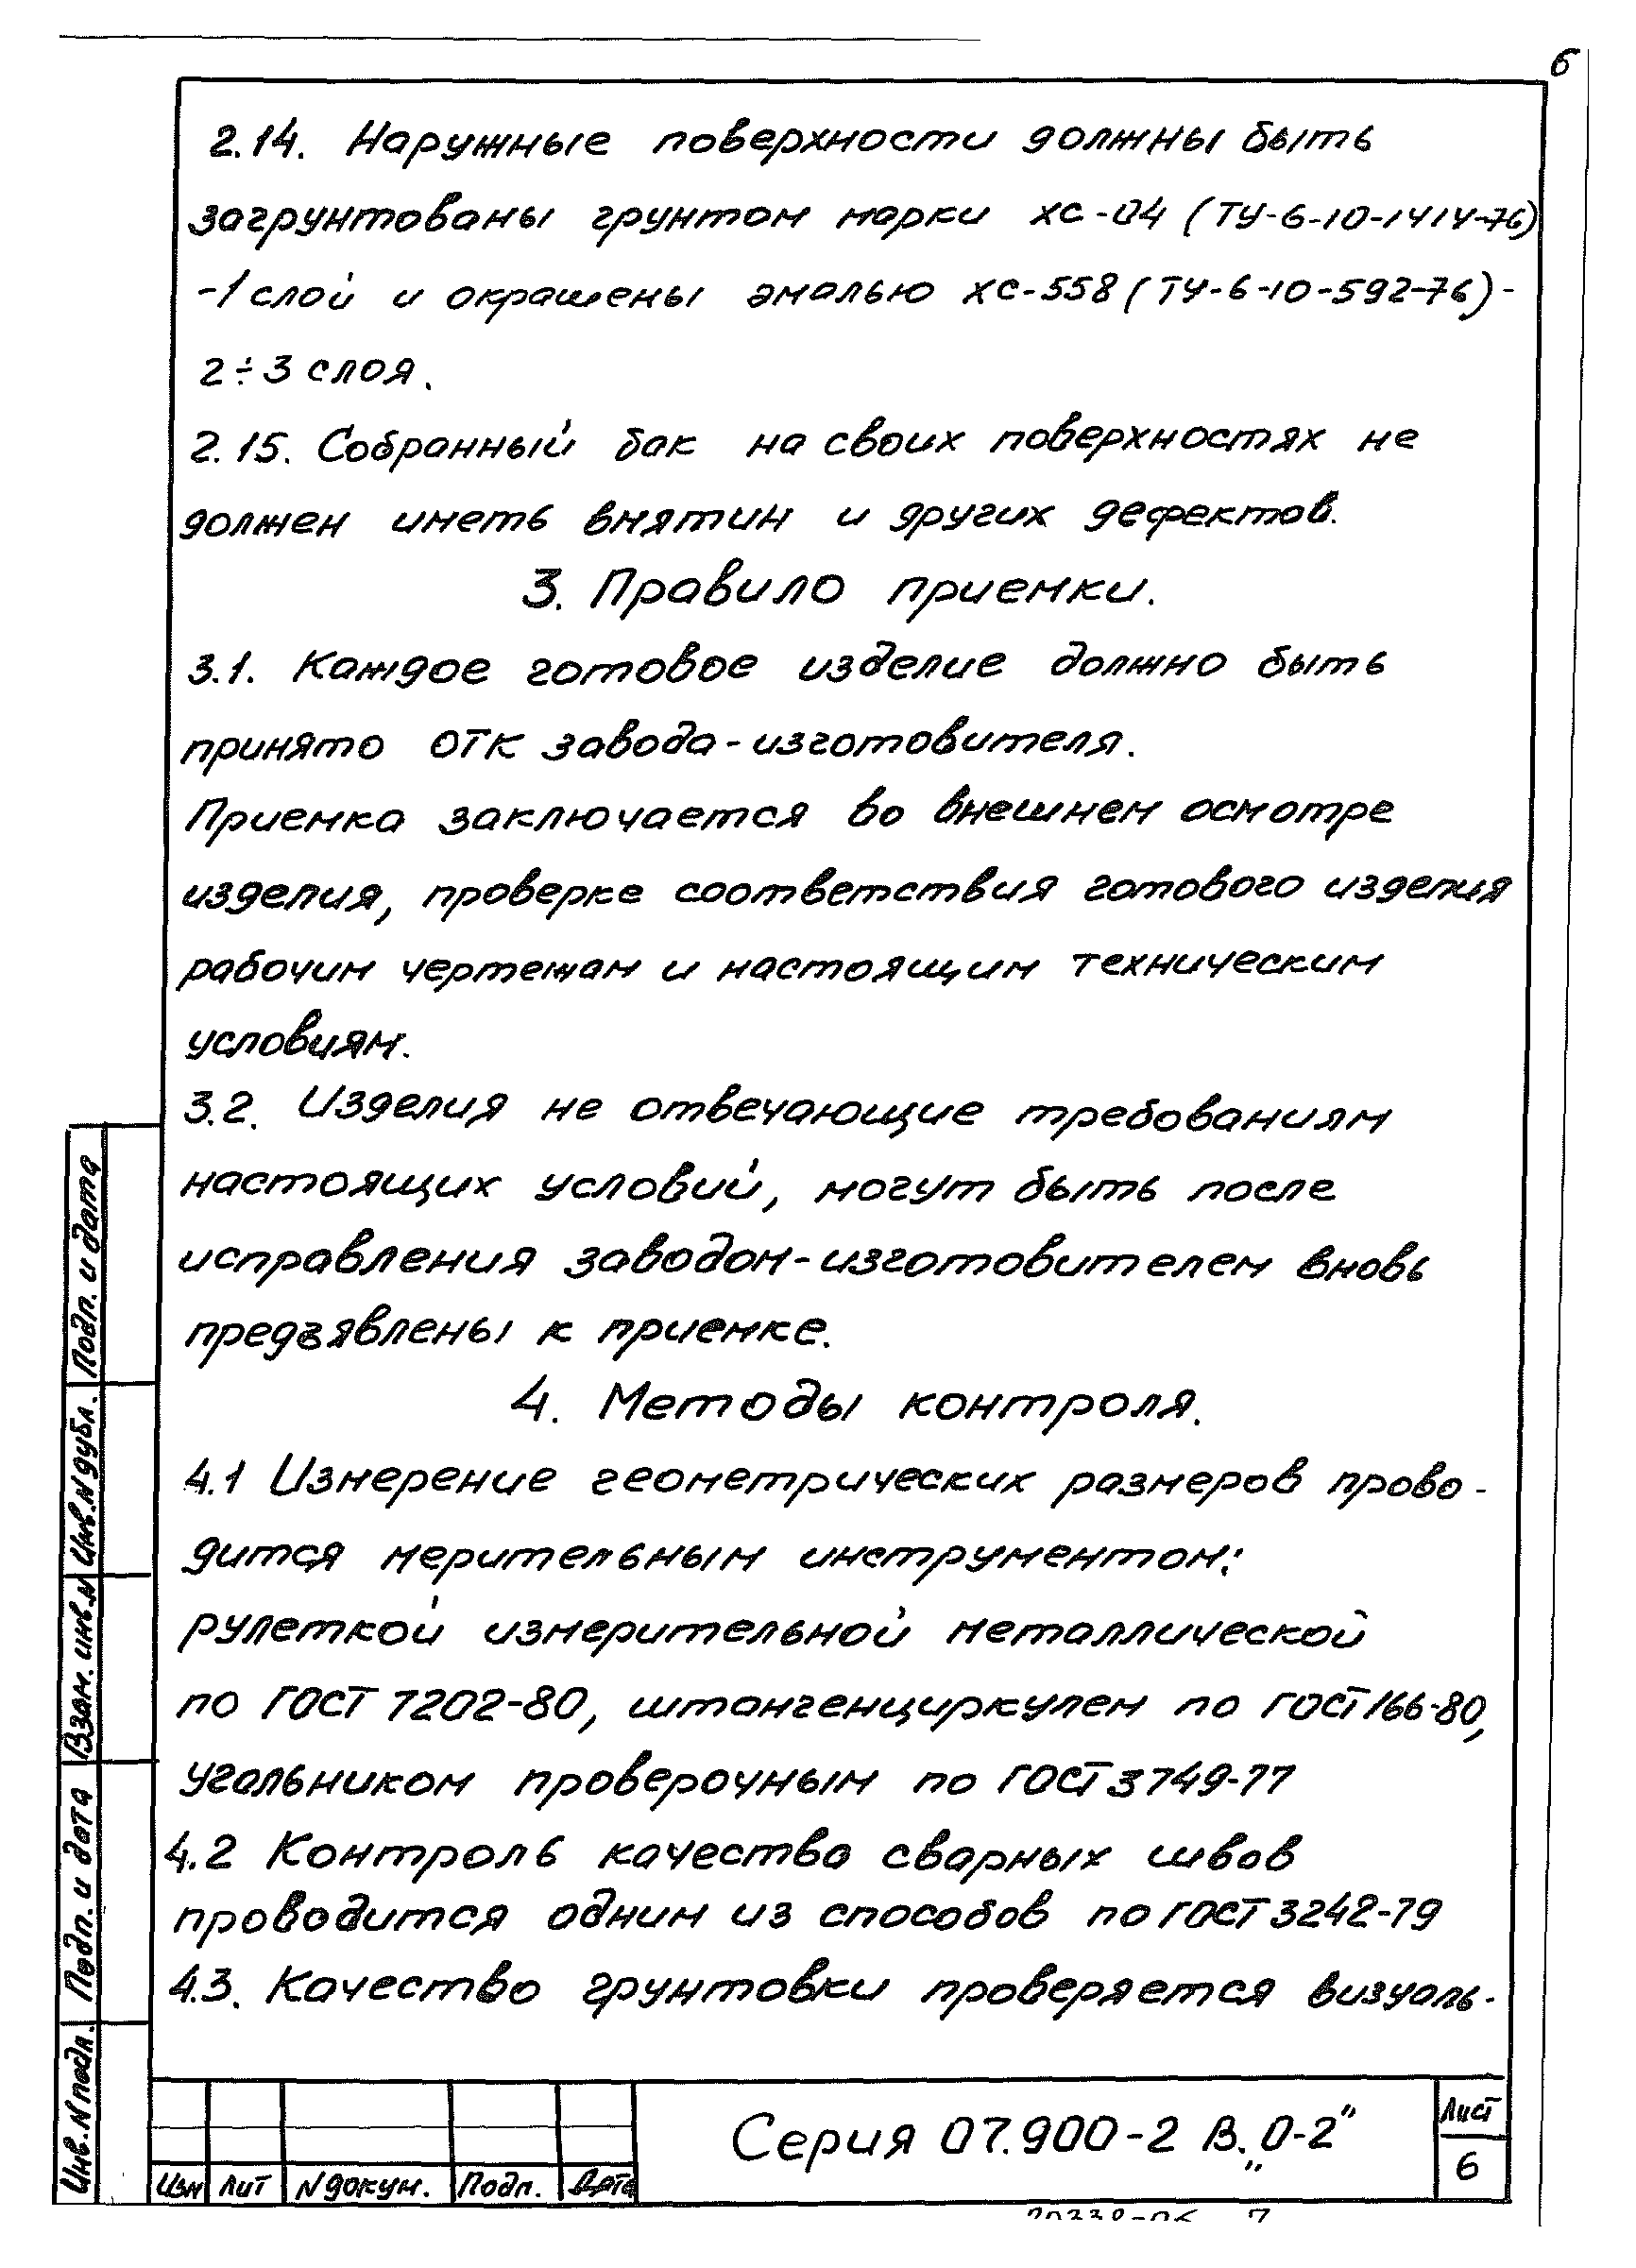 6
2.14. Наружные поверхности должны быть
загрунтованы грунтом марки ХС-04 (ТУ-6-10-1414-76)
-1 слой и окрашены эмалью ХС-558 (ТУ-6-10-592-76)-
2÷3 слоя.
2.15. Собранный бак на своих поверхностях не
должен иметь вмятин и других дефектов.
3. Правило приемки.
3.1. Каждое готовое изделие должно быть
принято ОТК завода-изготовителя.
Приемка заключается во внешнем осмотре
изделия, проверке соответствия готового изделия
рабочим чертежам и настоящим техническим
условиям.
3.2. Изделия не отвечающие требованиям
настоящих условий, могут быть после
исправления заводом-изготовителем вновь
предъявлены к приемке.
4. Методы контроля.
4.1 Измерение геометрических размеров прово-
дится мерительным инструментом:
рулеткой измерительной металлической
по ГОСТ 7202-80, штангенциркулем по ГОСТ 166-80,
угольником проверочным по ГОСТ 3749-77
4.2 Контроль качества сварных швов
проводится одним из способов по ГОСТ 3242-79
4.3. Качество грунтовки проверяется визуаль-
Подп. и дата
Инв. N дубл.
Взам. инв. N
Подп. и дата
Инв. N подл.
Изм Лит N докум. Подп. Дата
Серия 07.900-2 В. „0-2"
Лист
6